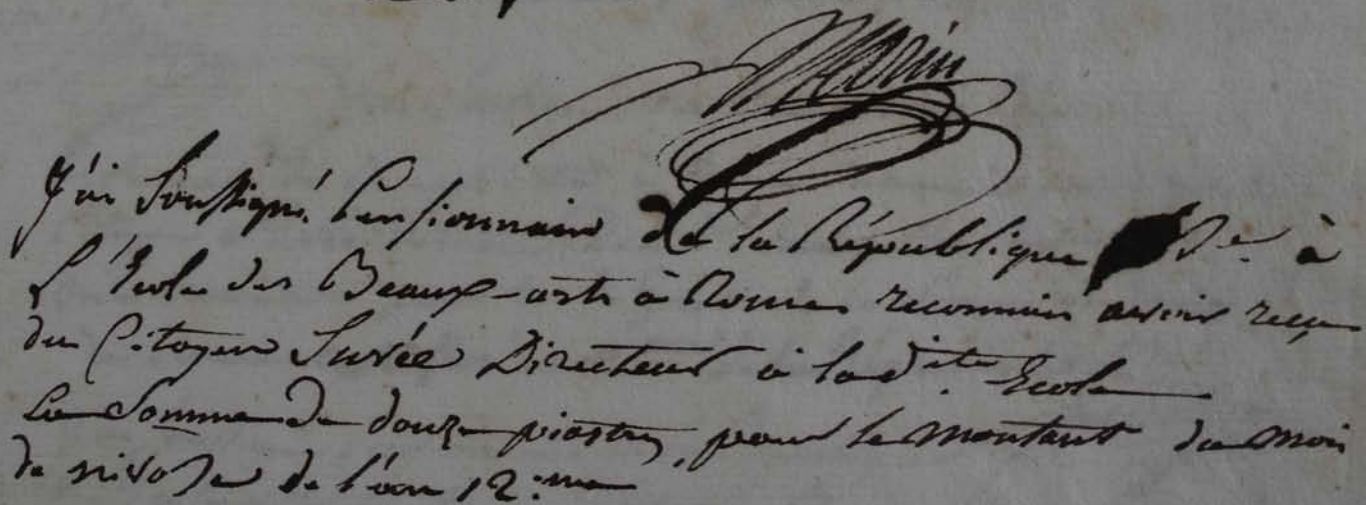 Morin
J'ai Soussigné Pensionnaire de la République à
L'Ecole des Beaux-arts à Rome reconnais avoir reçu
du Citoyen Suvée Directeur à la dite Ecole
La Somme de douze piastres, pour le montant du mois
de nivose de l'an 12.me